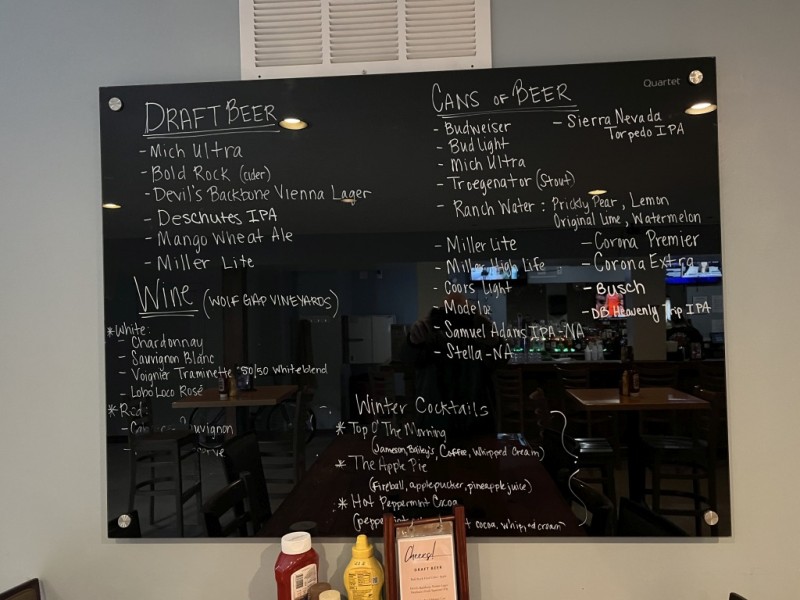 Quartet
DRAFT BEER
- Mich Ultra
- Bold Rock (cider)
- Devil's Backbone Vienna Lager
- Deschutes IPA
- Mango Wheat Ale
- Miller Lite
Wine (WOLF GAP VINEYARDS)
*White:
- Chardonnay
- Sauvignon Blanc
- Voignier Traminette 50/50 White blend
- Lobo Loco Rosé
*Red:
CANS OF BEER
- Budweiser
- Bud light
- Mich Ultra
- Troegenator (Stout)
- Ranch Water : Prickly Pear, Lemon
Original Lime, Watermelon
- Sierra Nevada
Torpedo IPA
- Miller Lite
- Miller High Life
- Coors Light
- Modelo
- Samuel Adams IPA-NA
- Stella-NA
- Corona Premier
- Corona Extra
- Busch
- DB Heavenly Trip IPA
Winter Cocktails
* Top O' The Morning
(Jameson, Bailey's, Coffee, Whipped Cream)
* The Apple Pie
(Fireball, apple pucker, pineapple juice)
* Hot Peppermint Cocoa
cocoa, whipped cream)
Cheers!
DRAFT BEER